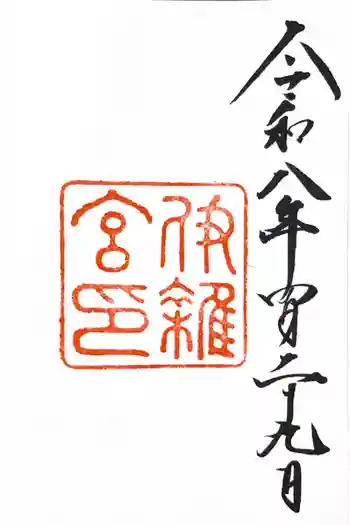 令和八年四月二十九日
伊雜
宮印